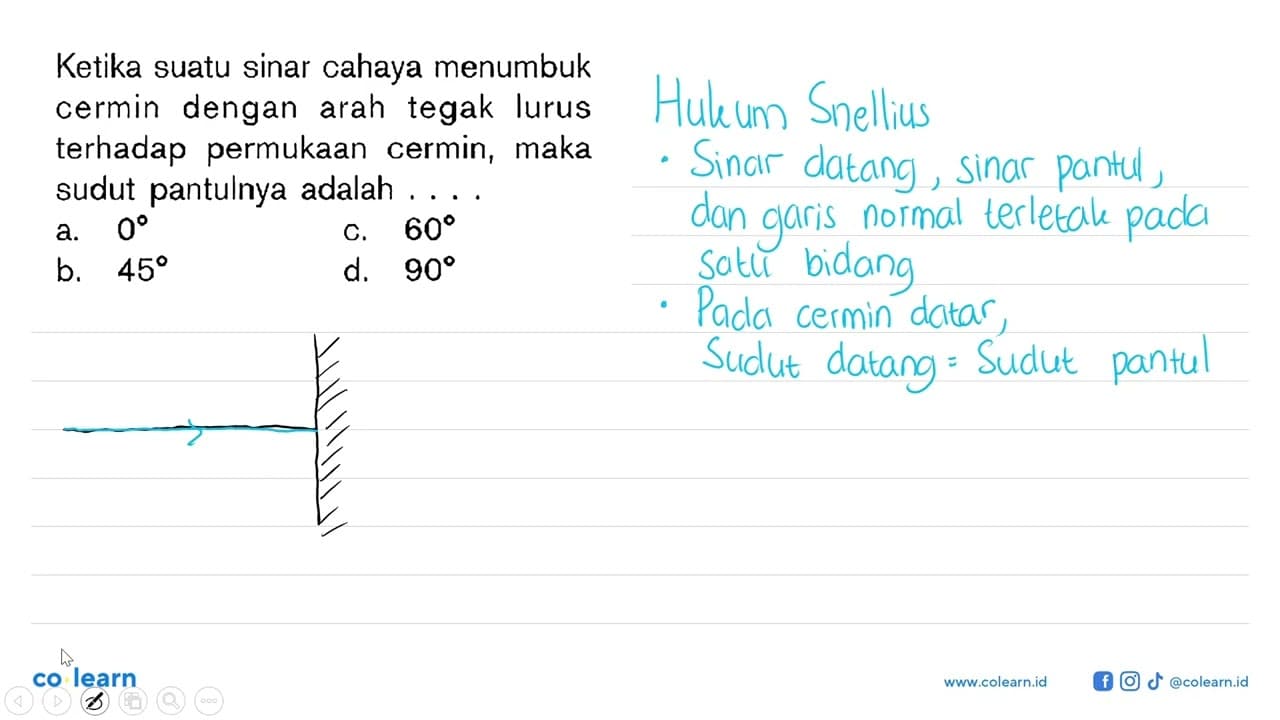 Ketika suatu sinar cahaya menumbuk
cermin dengan arah tegak lurus
terhadap permukaan cermin, maka
sudut pantulnya adalah . . . .
a. 0° c. 60°
b. 45° d. 90°
Hukum Snellius
• Sinar datang, sinar pantul,
dan garis normal terletak pada
satu bidang
• Pada cermin datar,
Sudut datang = Sudut pantul
co learn
www.colearn.id
@colearn.id